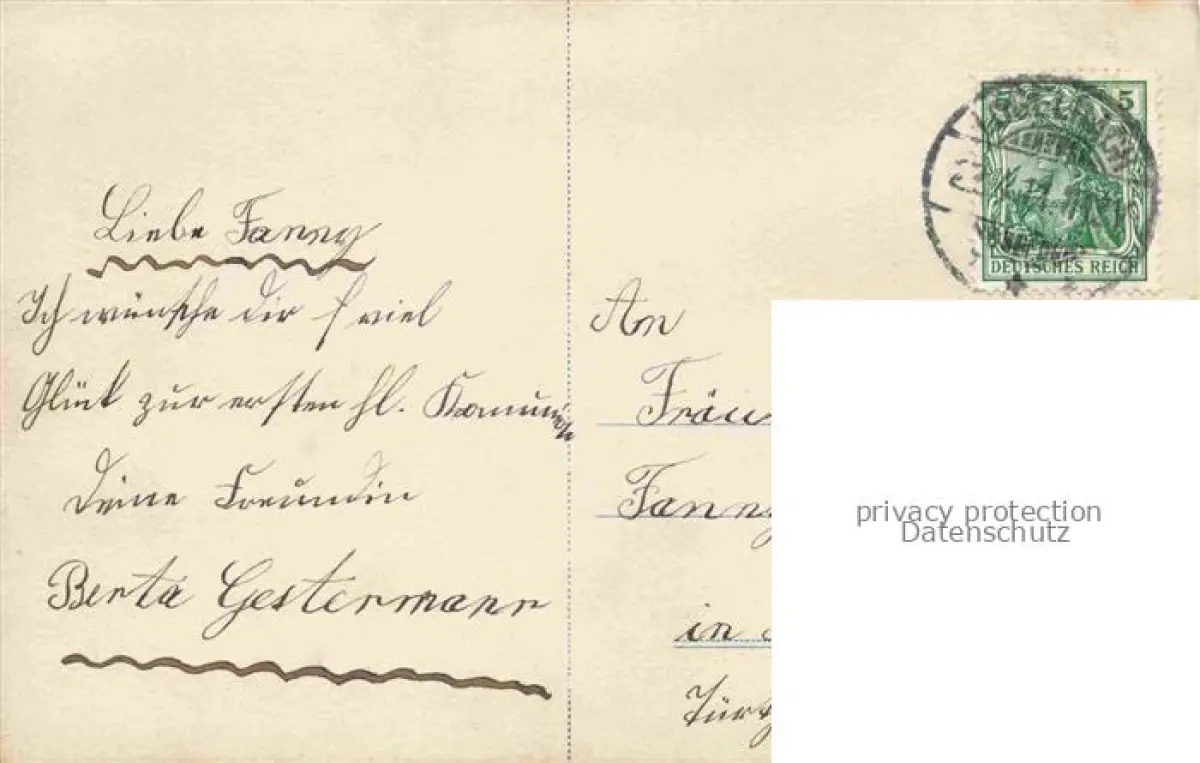 Liebe Fanny
Ich wünsche dir viel
Glück zur ersten hl. Komunion
Deine Freundin
Berta Gestermann
5 5
DEUTSCHES REICH
An
Fräu
Fanny
in
privacy protection
Datenschutz